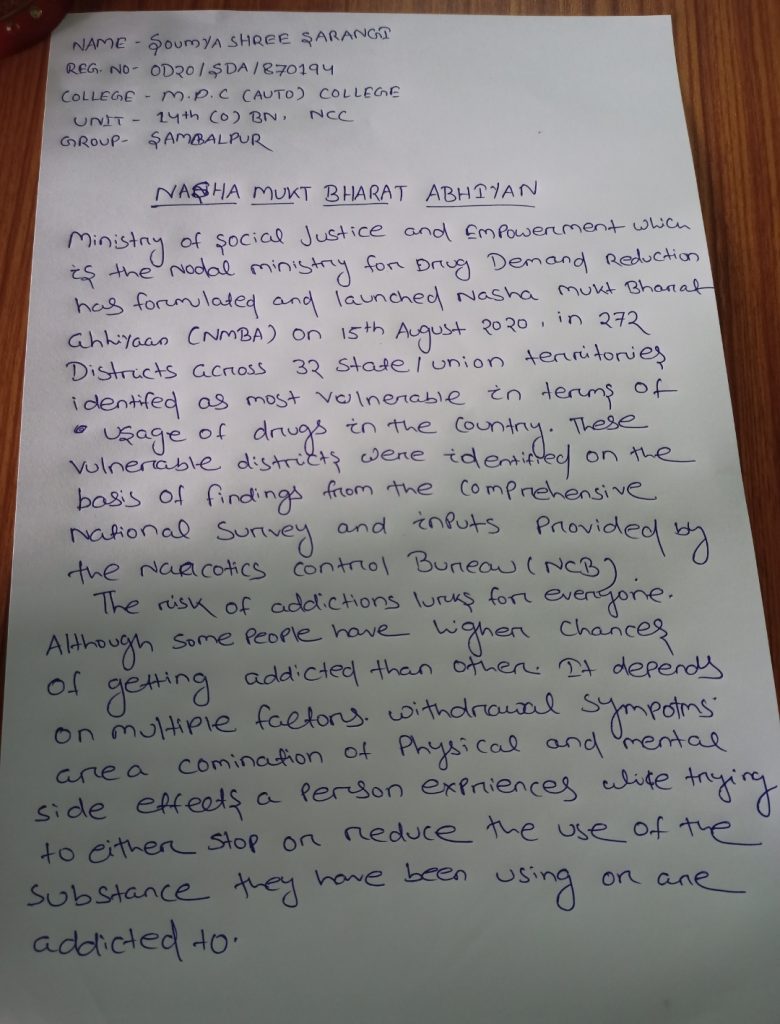 NAME - SOUMYA SHREE SARANGI
REG. NO- OD20/SDA/870194
COLLEGE - M.P.C (AUTO) COLLEGE
UNIT - 14th (O) BN, NCC
GROUP- SAMBALPUR
NASHA MUKT BHARAT ABHIYAN
Ministry of Social Justice and Empowerment which
is the Nodal ministry for Drug Demand Reduction
has formulated and launched Nasha Mukt Bharat
Ahhiyaan (NMBA) on 15th August 2020, in 272
Districts across 32 State/union territories
identifed as most vulnerable in terms of
usage of drugs in the Country. These
vulnerable districts were identified on the
basis of findings from the Comprehensive
National Survey and inputs Provided by
the Narcotics Control Bureau (NCB).
The risk of addictions lurks for everyone.
Although some People have higher chances
of getting addicted than other. It depends
on multiple factors. withdrawal sympotms
are a comination of Physical and mental
side effects a Person expriences while trying
to either stop or reduce the use of the
substance they have been using or are
addicted to.